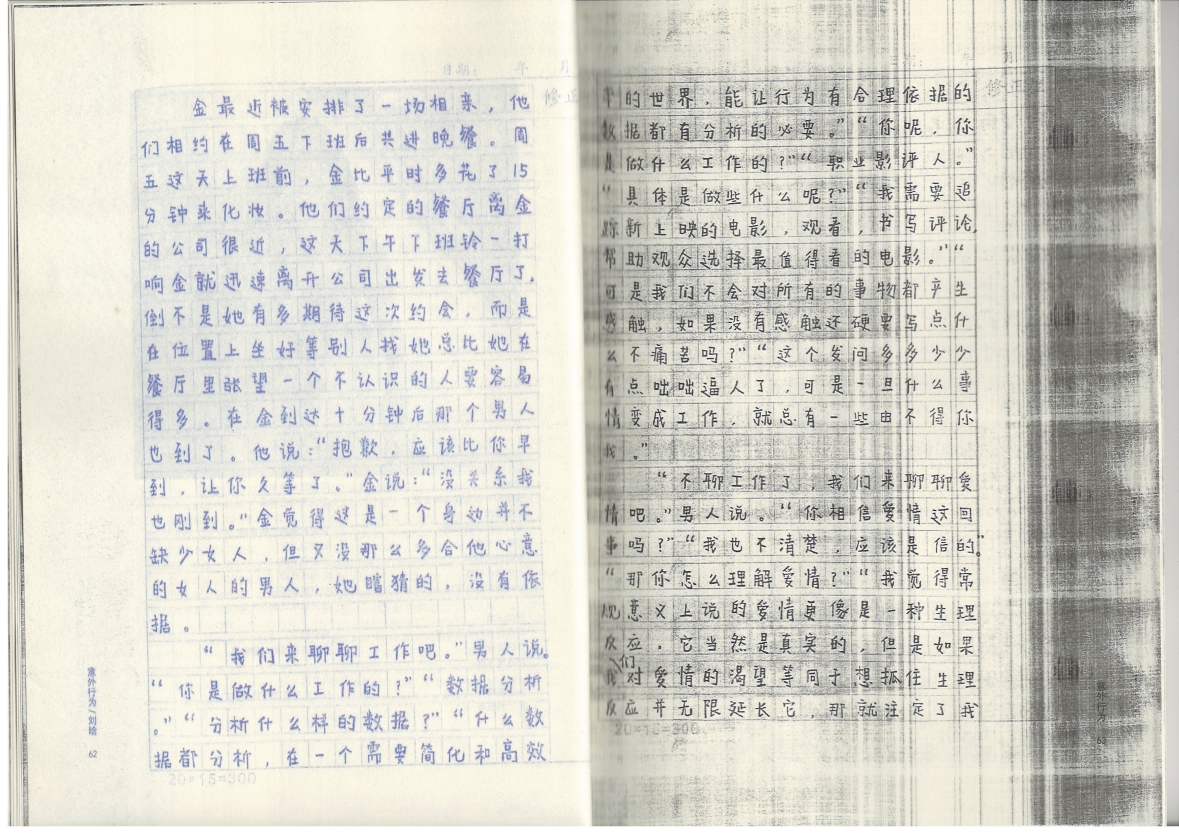 日期： 年 月
修正
金最近被安排了一场相亲，他
们相约在周五下班后共进晚餐。周
五这天上班前，金比平时多花了15
分钟来化妆。他们约定的餐厅离金
的公司很近，这天下午下班铃一打
响金就迅速离开公司出发去餐厅了，
倒不是她有多期待这次约会，而是
在位置上坐好等别人找她总比她在
餐厅里张望一个不认识的人要容易
得多。在金到达十分钟后那个男人
也到了。他说：“抱歉，应该比你早
到，让你久等了。”金说：“没关系我
也刚到。”金觉得这是一个身边并不
缺少女人，但又没那么多合他心意
的女人的男人，她瞎猜的，没有依
据。
“我们来聊聊工作吧。”男人说。
“你是做什么工作的？”“数据分析
。”“分析什么样的数据？”“什么数
据都分析，在一个需要简化和高效
20×15=300
意外行为/刘晗
62
年 月
修正
率的世界，能让行为有合理依据的
数据都有分析的必要。”“你呢，你
是做什么工作的？”“职业影评人。”
“具体是做些什么呢？”“我需要追
踪新上映的电影，观看，书写评论，
帮助观众选择最值得看的电影。”“
可是我们不会对所有的事物都产生
感触，如果没有感触还硬要写点什
么不痛苦吗？”“这个发问多多少少
有点咄咄逼人了，可是一旦什么事
情变成工作，就总有一些由不得你
我。”
“不聊工作了，我们来聊聊爱
情吧。”男人说。“你相信爱情这回
事吗？”“我也不清楚，应该是信的。”
“那你怎么理解爱情？”“我觉得常
规意义上说的爱情更像是一种生理
反应，它当然是真实的，但是如果
我们对爱情的渴望等同于想抓住生理
反应并无限延长它，那就注定了我
20×15=300
意外行为
63